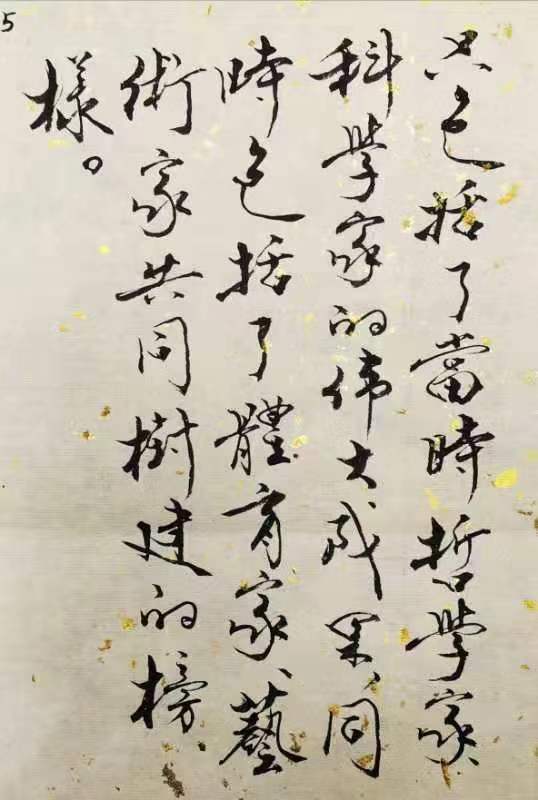 只包括了當時哲學家、
科學家的伟大成果、同
時包括了體育家、藝
術家共同樹建的榜
樣。
5